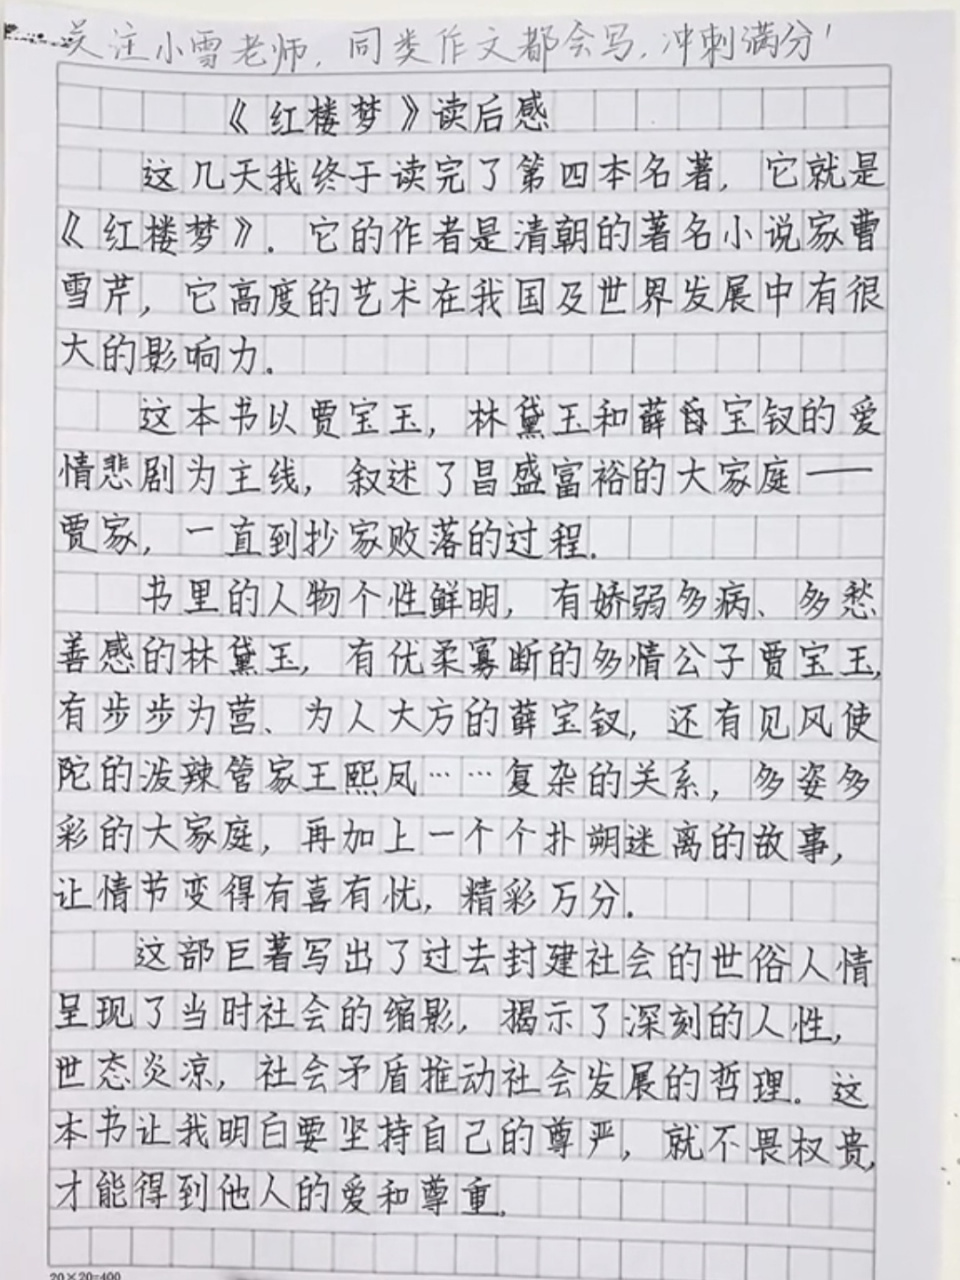 关注小雪老师，同类作文都会写，冲刺满分！
《红楼梦》读后感
这几天我终于读完了第四本名著，它就是
《红楼梦》．它的作者是清朝的著名小说家曹
雪芹，它高度的艺术在我国及世界发展中有很
大的影响力。
这本书以贾宝玉，林黛玉和薛宝钗的爱
情悲剧为主线，叙述了昌盛富裕的大家庭——
贾家，一直到抄家败落的过程．
书里的人物个性鲜明，有娇弱多病、多愁
善感的林黛玉，有优柔寡断的多情公子贾宝玉，
有步步为营、为人大方的薛宝钗，还有见风使
陀的泼辣管家王熙凤……复杂的关系，多姿多
彩的大家庭，再加上一个个扑朔迷离的故事，
让情节变得有喜有忧，精彩万分．
这部巨著写出了过去封建社会的世俗人情
呈现了当时社会的缩影，揭示了深刻的人性，
世态炎凉，社会矛盾推动社会发展的哲理．这
本书让我明白要坚持自己的尊严，就不畏权贵，
才能得到他人的爱和尊重．
20×20=400